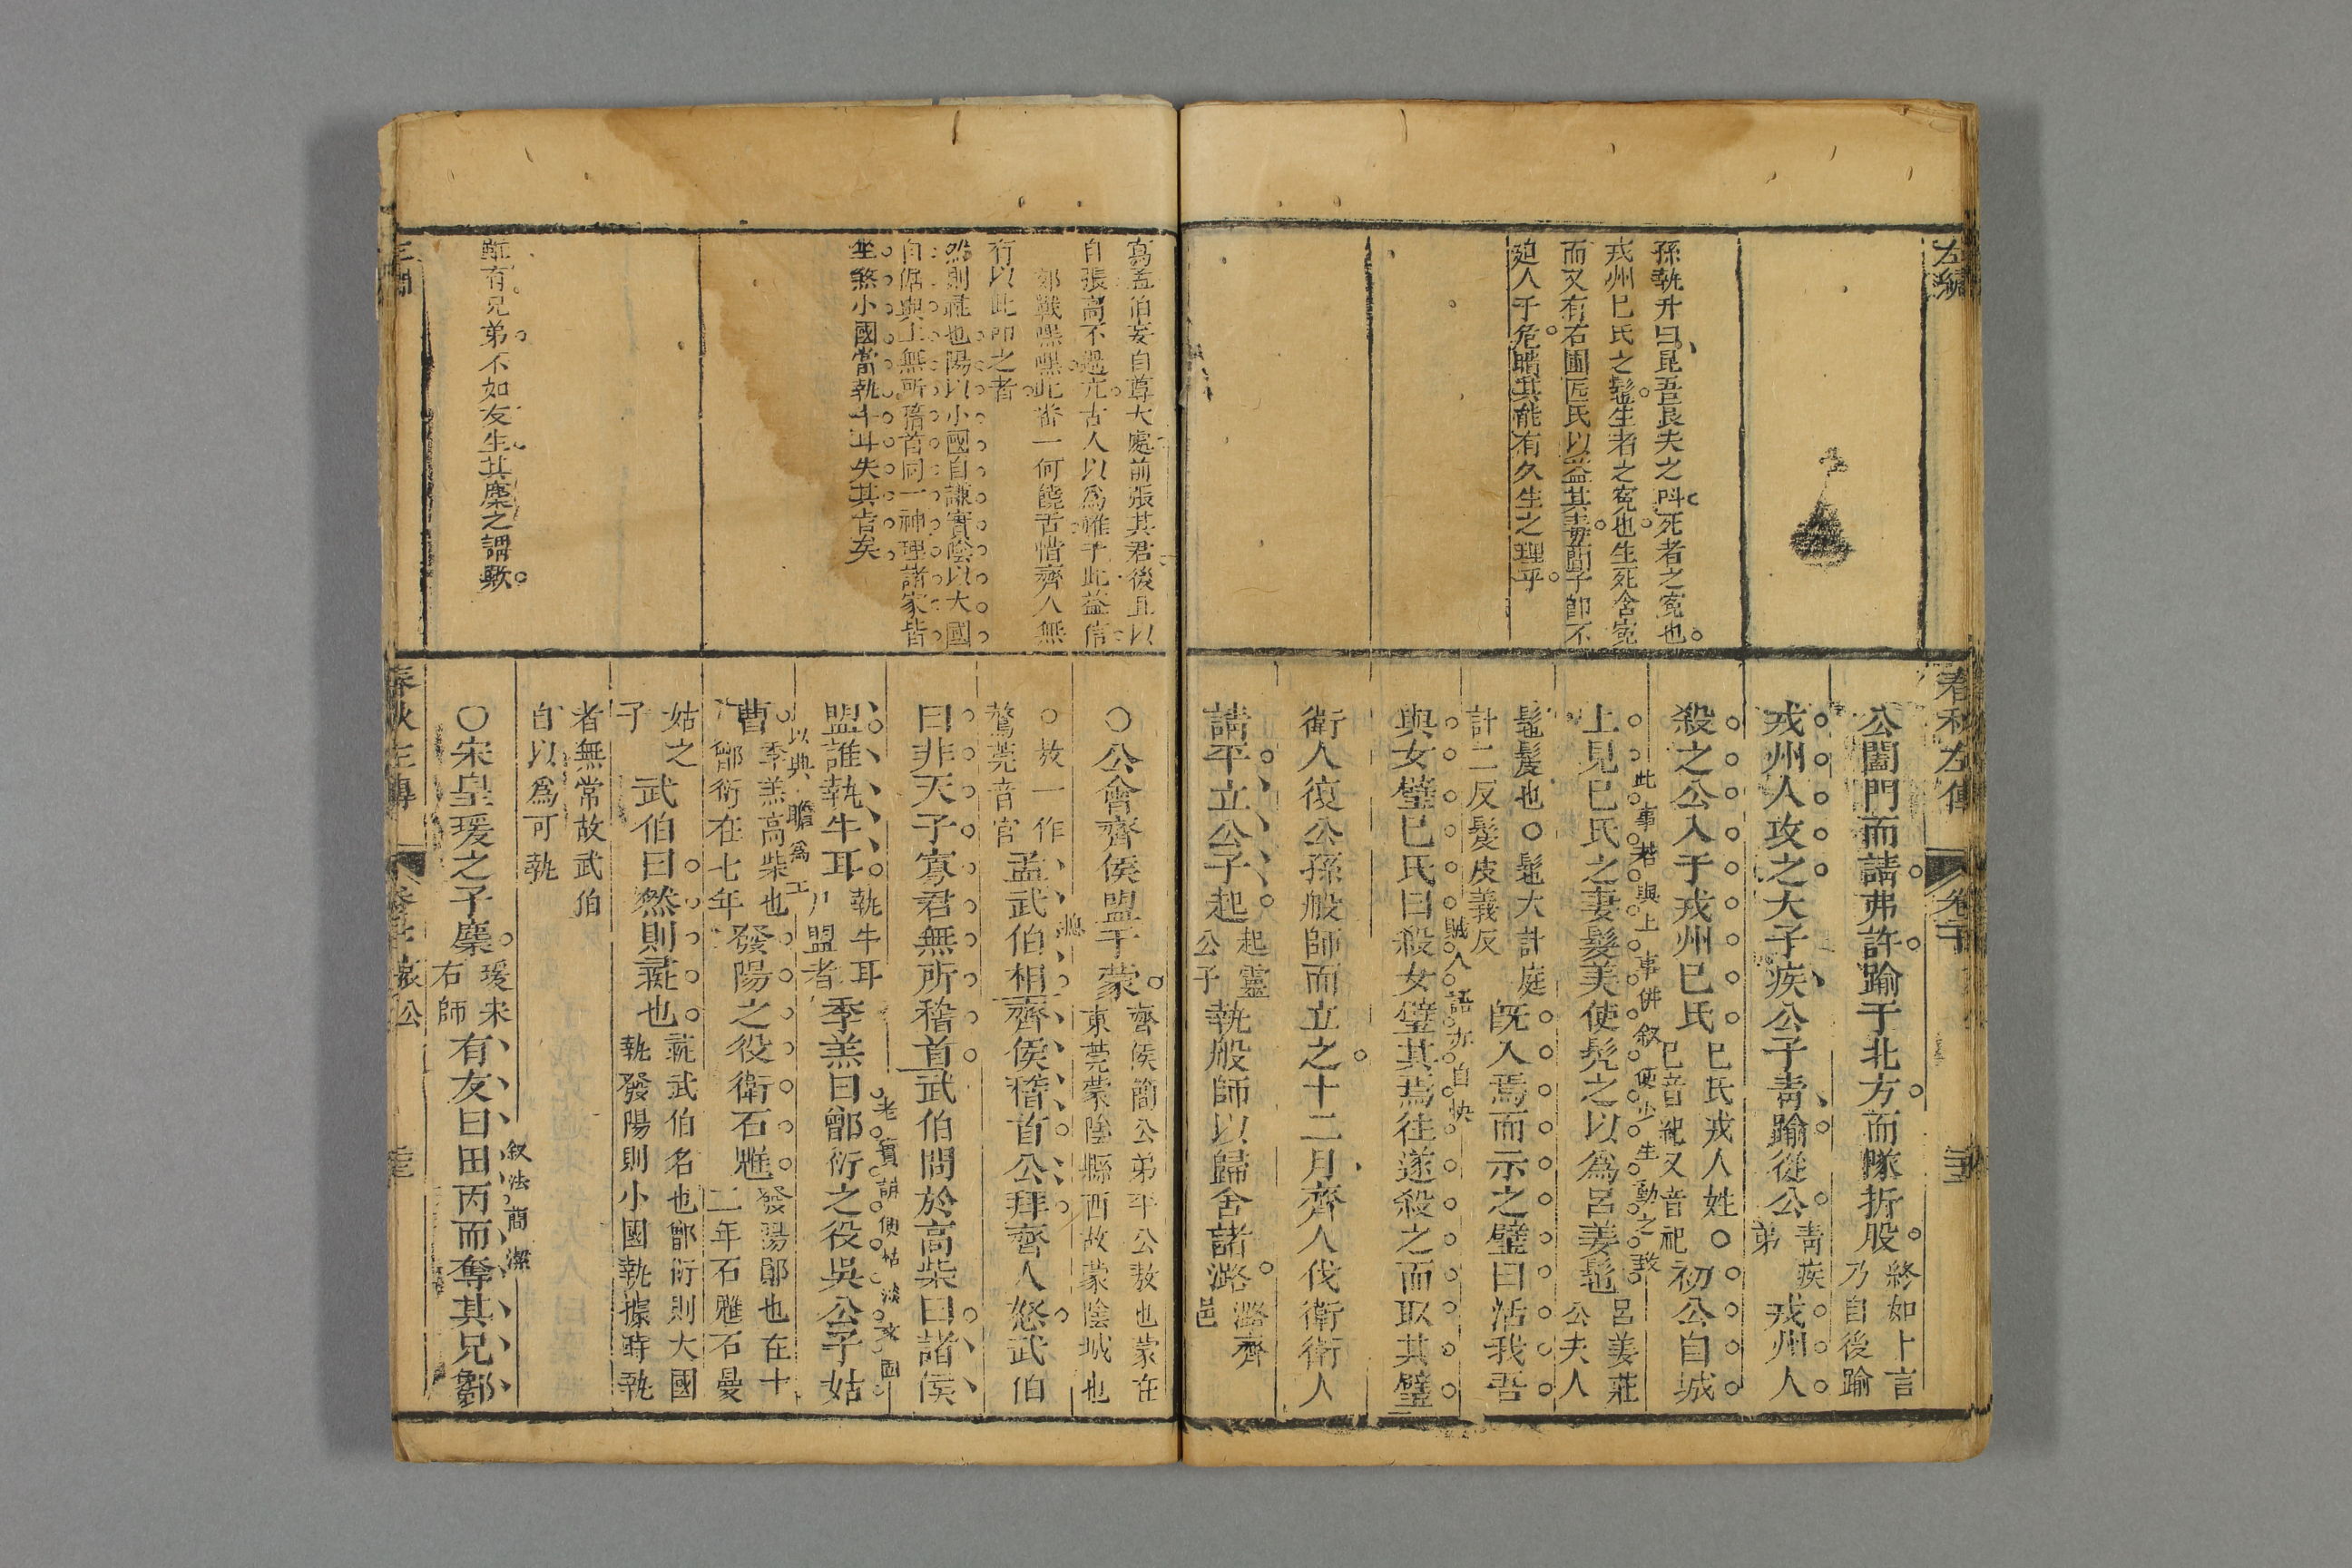 左繡
孫執升曰昆吾良夫之呌死者之寃也
戎州巳氏之髢生者之寃也生死含寃
而又有右圃匠氏以益其毒蒯子卽不
廹人于危暗其能有久生之理乎
春秋左傳
卷三十
公闔門而請弗許踰于北方而隊折股
終如卜言
乃自後踰
戎州人攻之大子疾公子靑踰從公
靑疾
弟
戎州人
殺之公入于戎州巳氏
巳氏戎人姓○
巳音紀又音祀
初公自城
此事若與上事倂叙便少生動之致
上見巳氏之妻髮美使髠之以爲呂姜髢
呂姜莊
公夫人
髢髲也○髢大計庭
計二反髲皮義反
旣入焉而示之璧曰活我吾
賊人語亦自快
與女璧巳氏曰殺女璧其焉往遂殺之而取其璧
衛人復公孫般師而立之十二月齊人伐衛衛人
請平立公子起
起靈
公子
執般師以歸舍諸潞
潞齊
邑
寫孟伯妄自尊大處前張其君後且以
自張高不過亢古人以爲惟于此益信
郊戰嘿嘿此畨一何饒舌惜齊人無
有以此卽之者
然則彘也陽以小國自謙實陰以大國
自倨與上無所稽首同一神理諸家皆
坐煞小國當執牛耳失其旨矣
○公會齊侯盟于蒙
齊侯簡公弟平公敖也蒙在
東莞蒙陰縣西故蒙陰城也
○敖一作
驁莞音官
孟武伯相齊侯稽首公拜齊人怒武伯
曰非天子寡君無所稽首武伯問於高柴曰諸侯
盟誰執牛耳
執牛耳
尸盟者
季羔曰鄫衍之役吳公子姑
曹
季羔高柴也
鄫衍在七年
發陽之役衛石魋
發陽鄖也在十
二年石魋石曼
姑之
子
武伯曰然則彘也
彘武伯名也鄫衍則大國
執發陽則小國執據時執
者無常故武伯
自以爲可執
甂有兄弟不如友生其麋之謂歟
○宋皇瑗之子麇
瑗宋
右師
有友曰田丙而奪其兄鄒
叙法簡潔
春秋左傳
哀公